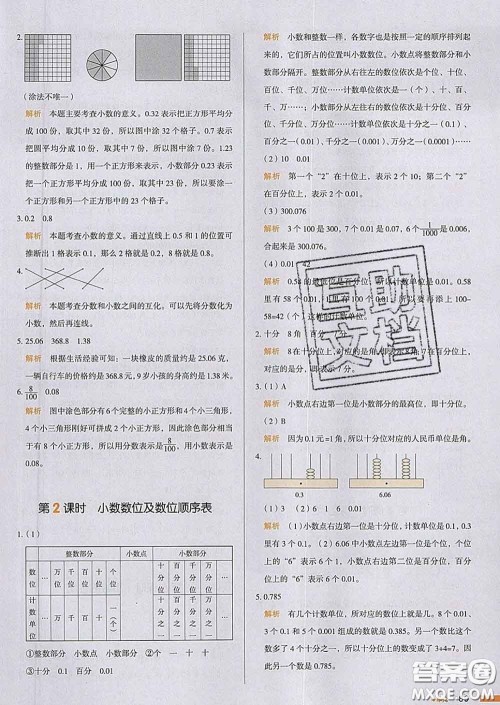 2.
(涂法不唯一)
解析 本题主要考查小数的意义。0.32 表示把正方形平均分
成 100 份，取其中 32 份，所以图中涂 32 个格子。0.7 表示
把圆平均分成 10 份，取其中 7 份，所以图中涂 7 份。1.23
的整数部分是 1，用一个正方形来表示，小数部分 0.23 表示
把一个正方形平均分成 100 份，取其中的 23 份，所以要涂
一个正方形和 23 个格子。
3. 0.2 0.8
解析 本题考查小数的意义。通过直线上 0.5 和 1 的位置可
推断出 1 格表示 0.1，2 格就是 0.2，8 格就是 0.8。
4.
解析 本题考查分数和小数之间的互化。可以先将分数化为
小数，然后再连线。
5. 25.06 368.8 1.38
解析 根据生活经验可知：一块橡皮的质量是 25.06 克，
一辆自行车的价格是 368.8 元，9 岁小孩的身高约是 1.38 米。
6. 8/100 0.08
解析 图中涂色部分有 6 个完整的小正方形和 4 个小三角形，
4 个小三角形刚好可拼成 2 个小正方形，因此涂色部分相当
于有 8 个小正方形，所以用分数表示是 8/100，用小数表示是
0.08。
第 2 课时 小数数位及数位顺序表
1. (1)
整数部分 小数点 小数部分
数位 … 万位 千位 百位 十位 个位 · 十分位 百分位 千分位 万分位 …
计数单位 … 万 千 百 十 一(个) 十分之一 百分之一 千分之一 万分之一 …
①整数部分 小数点 小数部分
③十分 0.1 百分 0.01
解析 小数和整数一样，各数字也是按照一定的顺序排列起
来的，它们所占的位置叫小数数位。小数点将整数部分和小
数部分隔开。整数部分从右往左的数位依次是个位、十位、
百位、千位、万位……计数单位依次是一（个）、十、百、
千、万……小数部分从左往右的数位依次是十分位、百分
位、千分位、万分位……计数单位依次是十分之一（0.1）、
百分之一（0.01）、千分之一（0.001）、万分之一（0.0001）……
(2) 10 0.01
解析 第一个“2”在十位上，表示 2 个 10；第二个“2”
在百分位上，表示 2 个 0.01。
(3) 300.076
解析 3 个 100 是 300，7 个 0.01 是 0.07，6 个 1/1000 是 0.006，
合起来是 300.076。
(4) 42
解析 0.58 的最低位是百分位，计数单位是 0.01。0.58 里
58=42（个）这样的计数单位。
2. 十分 8 角 百分 7 分
解析 8 在十分位上，对应的是角，表示 8 角。7 在百分位上，
对应的是分，表示 7 分。
3. (1) A
解析 小数点右边第一位是小数部分的最高位，即十分位。
(2) B
解析 因为 0.1 元=1 角，所以十分位对应的人民币单位是角。
4.
0.3 6.06
解析 (1) 小数点右边第一位是十分位，计数单位是 0.1，0.3
里有 3 个 0.1。(2) 6.06 中小数点左边第一位是个位，个位
上的“6”表示 6 个 1。小数点右边第二位是百分位，百分位
上的“6”表示 6 个 0.01。
5. 0.785
解析 有几个计数单位，所对应的数位上就是几。8 个 0.01、
3 个 0.1 和 5 个 0.001 组成的数就是 0.385。而原来的数比这个
数多了 4 个十分之一，所以十分位上的数就变成了 3+4=7。因
此另一个数是 0.785。
三助
文档
答案圈
MXQE.COM